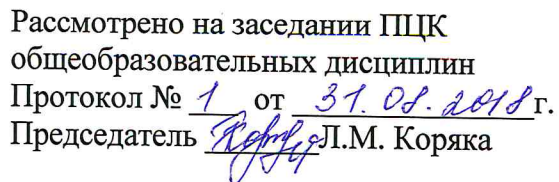 Рассмотрено на заседании ПЦК
общеобразовательных дисциплин
Протокол № 1 от 31.08.2018г.
Председатель Л.М. Коряка